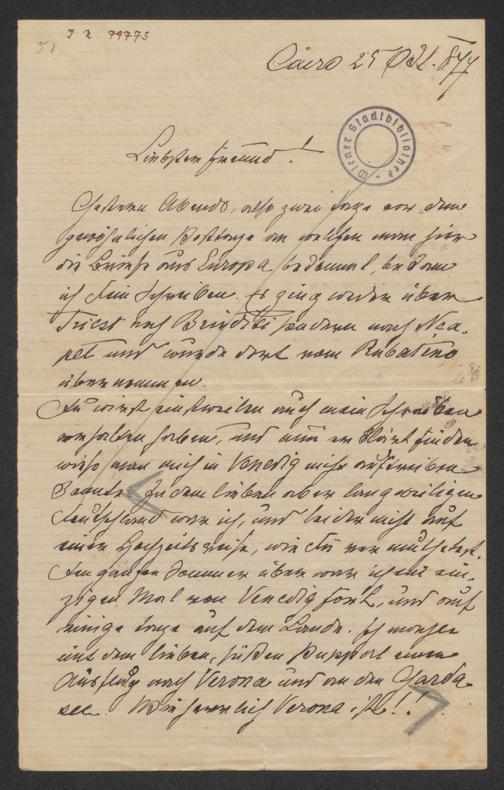 51
J N. 79773
Cairo 25 Okt. 877
Wiener Stadtbibliothek
Liebster Freund!
Gestern Abends, also zwei Tage vor dem
gewöhnlichen Posttage an welchem man hier
die Briefe aus Europa bekommt, bekam
ich Dein Schreiben. Es ging weder über
Triest noch Brindisi sondern nach Nea-
pel und wurde dort vom Rubatino
übernommen.
Du wirst einstweilen auch mein Schreiben
erhalten haben, und nun erklärt finden
wieso man mich in Venedig nicht auftreiben
konnte. In dem lieben aber langweiligen
Deutschland war ich, und leider nicht auf
einer Hochzeitsreise, wie Du vermuthetest.
Den ganzen Sommer über war ich ein ein-
ziges Mal von Venedig fort, und auf
einige Tage auf dem Lande. Ich machte
mit dem lieben, süßen
Ausflug nach Verona und an den Garda-
see. Wie herrlich Verona ist!!